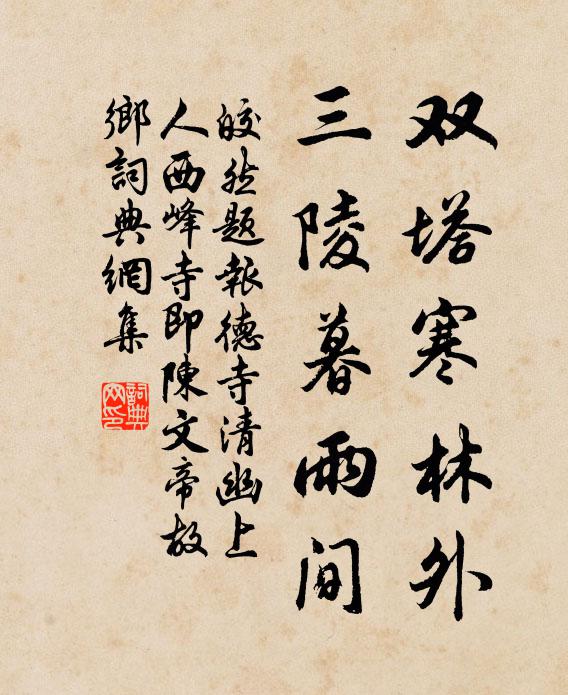 双塔寒林外
三陵暮雨间
皎然题報德寺清幽上
人西峰寺即陳文帝故
鄉詞典網集
詞典
网印